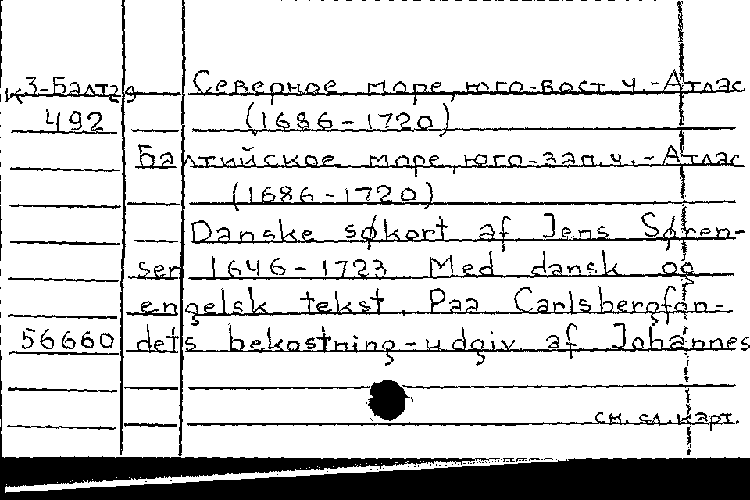 К3-Балтая Северное море, юго-вост. ч. - Атлас
492 (1686-1720)
Балтийское море, юго-зап. ч. - Атлас
(1686-1720)
Danske søkort af Jens Søren-
sen 1646-1723 Med dansk og
engelsk tekst. Paa Carlsbergfon-
56660 dets bekostning-udgiv af Johannes
см. сл. карт.